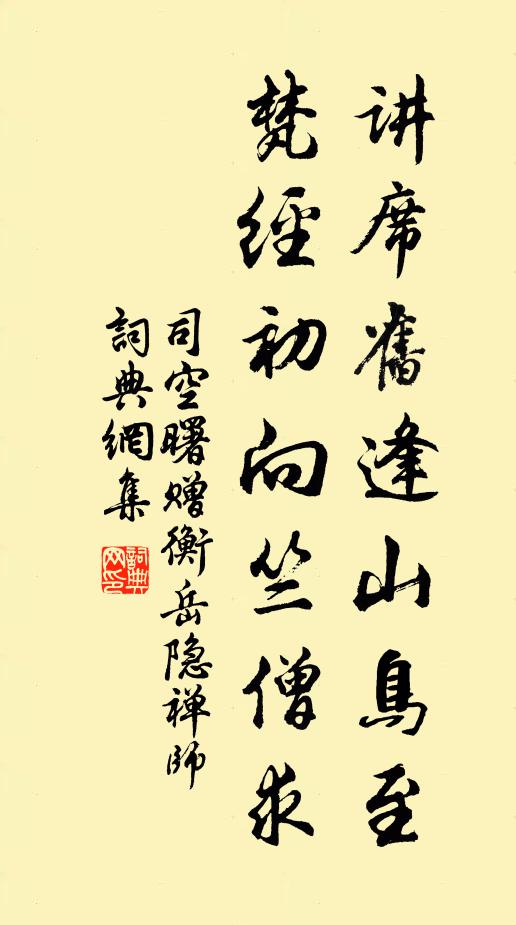 讲席舊逢山鳥至
梵經初向竺僧求
司空曙赠衡岳隐禅师
詞典網集
詞典网印